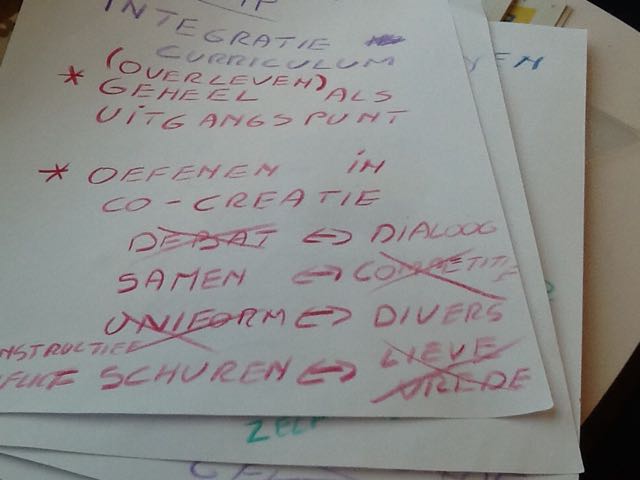 INTEGRATIE
CURRICULUM
(OVERLEVEN)
* GEHEEL ALS
UITGANGSPUNT
* OEFENEN IN
CO-CREATIE
DEBAT <-> DIALOOG
SAMEN <-> COMPETITIE
UNIFORM <-> DIVERS
NSTRUCTIEF
SCHUREN <-> LIEVE
VREDE